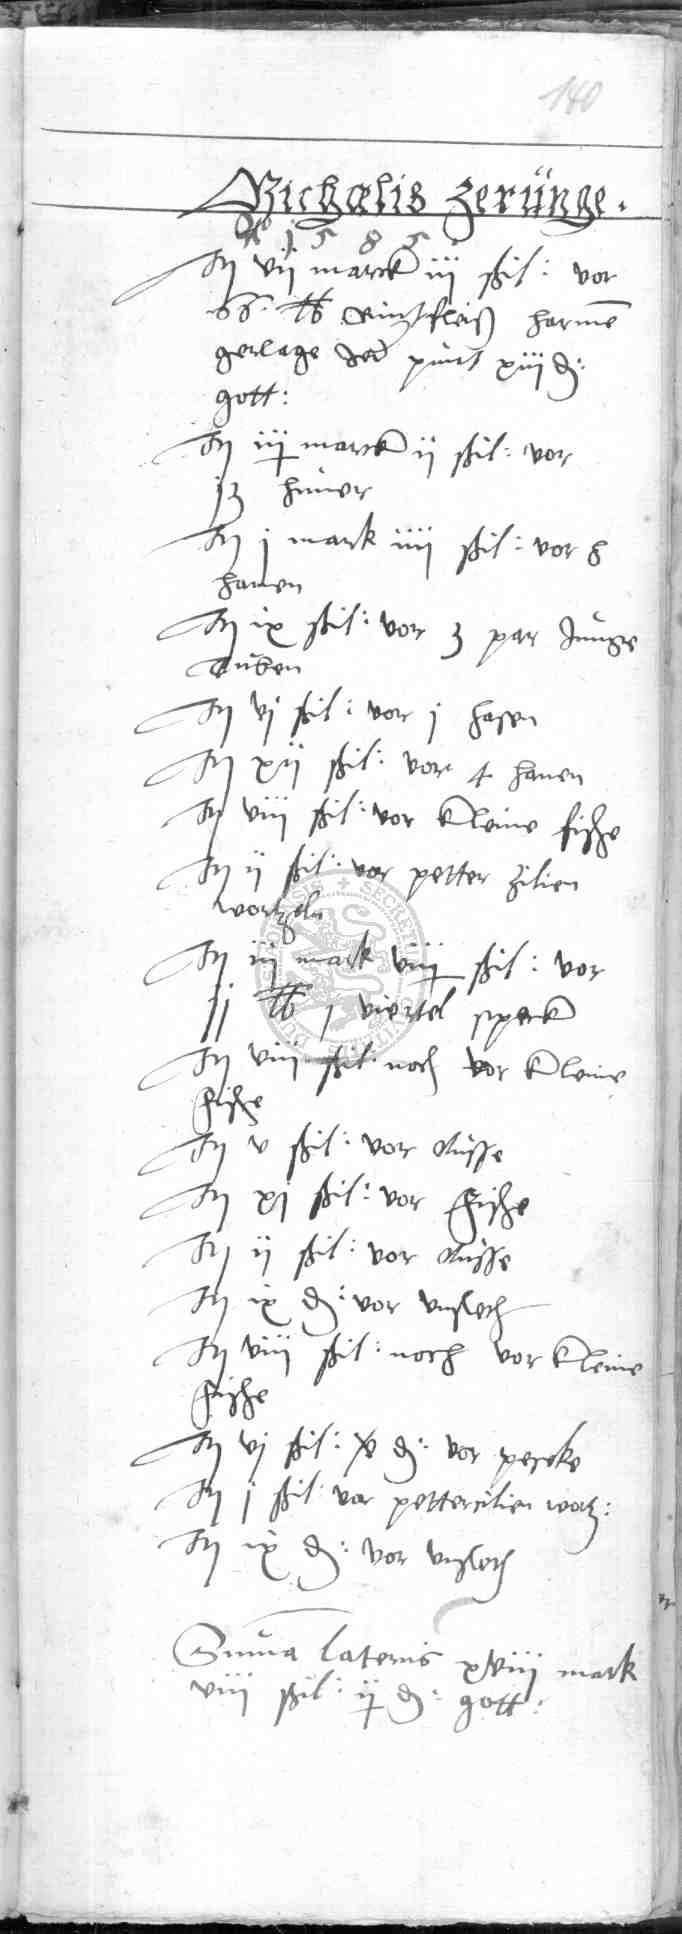 140
Michælis Zerünge.
Aº 1585.
It vij marck iij ßil: vor
66. lb Rintfleiß harmē
gerlage jed punt xiij d:
gott:
It iij marck ij ßil: vor
hüner
It j mark iiij ßil: vor 8
hanen
It ix ßil: vor 3 par Junge
Duben
It vj ßil: vor j hasen
It xij ßil: vor 4 hanen
It viij ßil: vor kleine fische
It ij ßil: vor petter zilien
wortzeln
It iij mark viiij ßil: vor
jj lb j viertel speck
It viij ßil: noch vor kleine
fische
It v ßil: vor Nüsse
It xj ßil: vor fische
It ij ßil: vor Nüsse
It ix d: vor
It viij ßil: noch vor kleine
fische
It vj ßil: d: vor
It j ßil: vor pettercilien wortz:
It ix d: vor
Suma lateris xviij mark
viij ßil: ij d: gott:
SECRETUM CIVITATIS